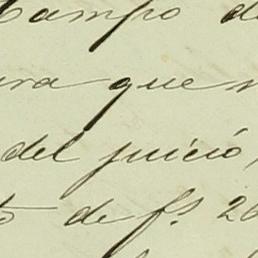 Campo de
que
del juició,
de fs. 26